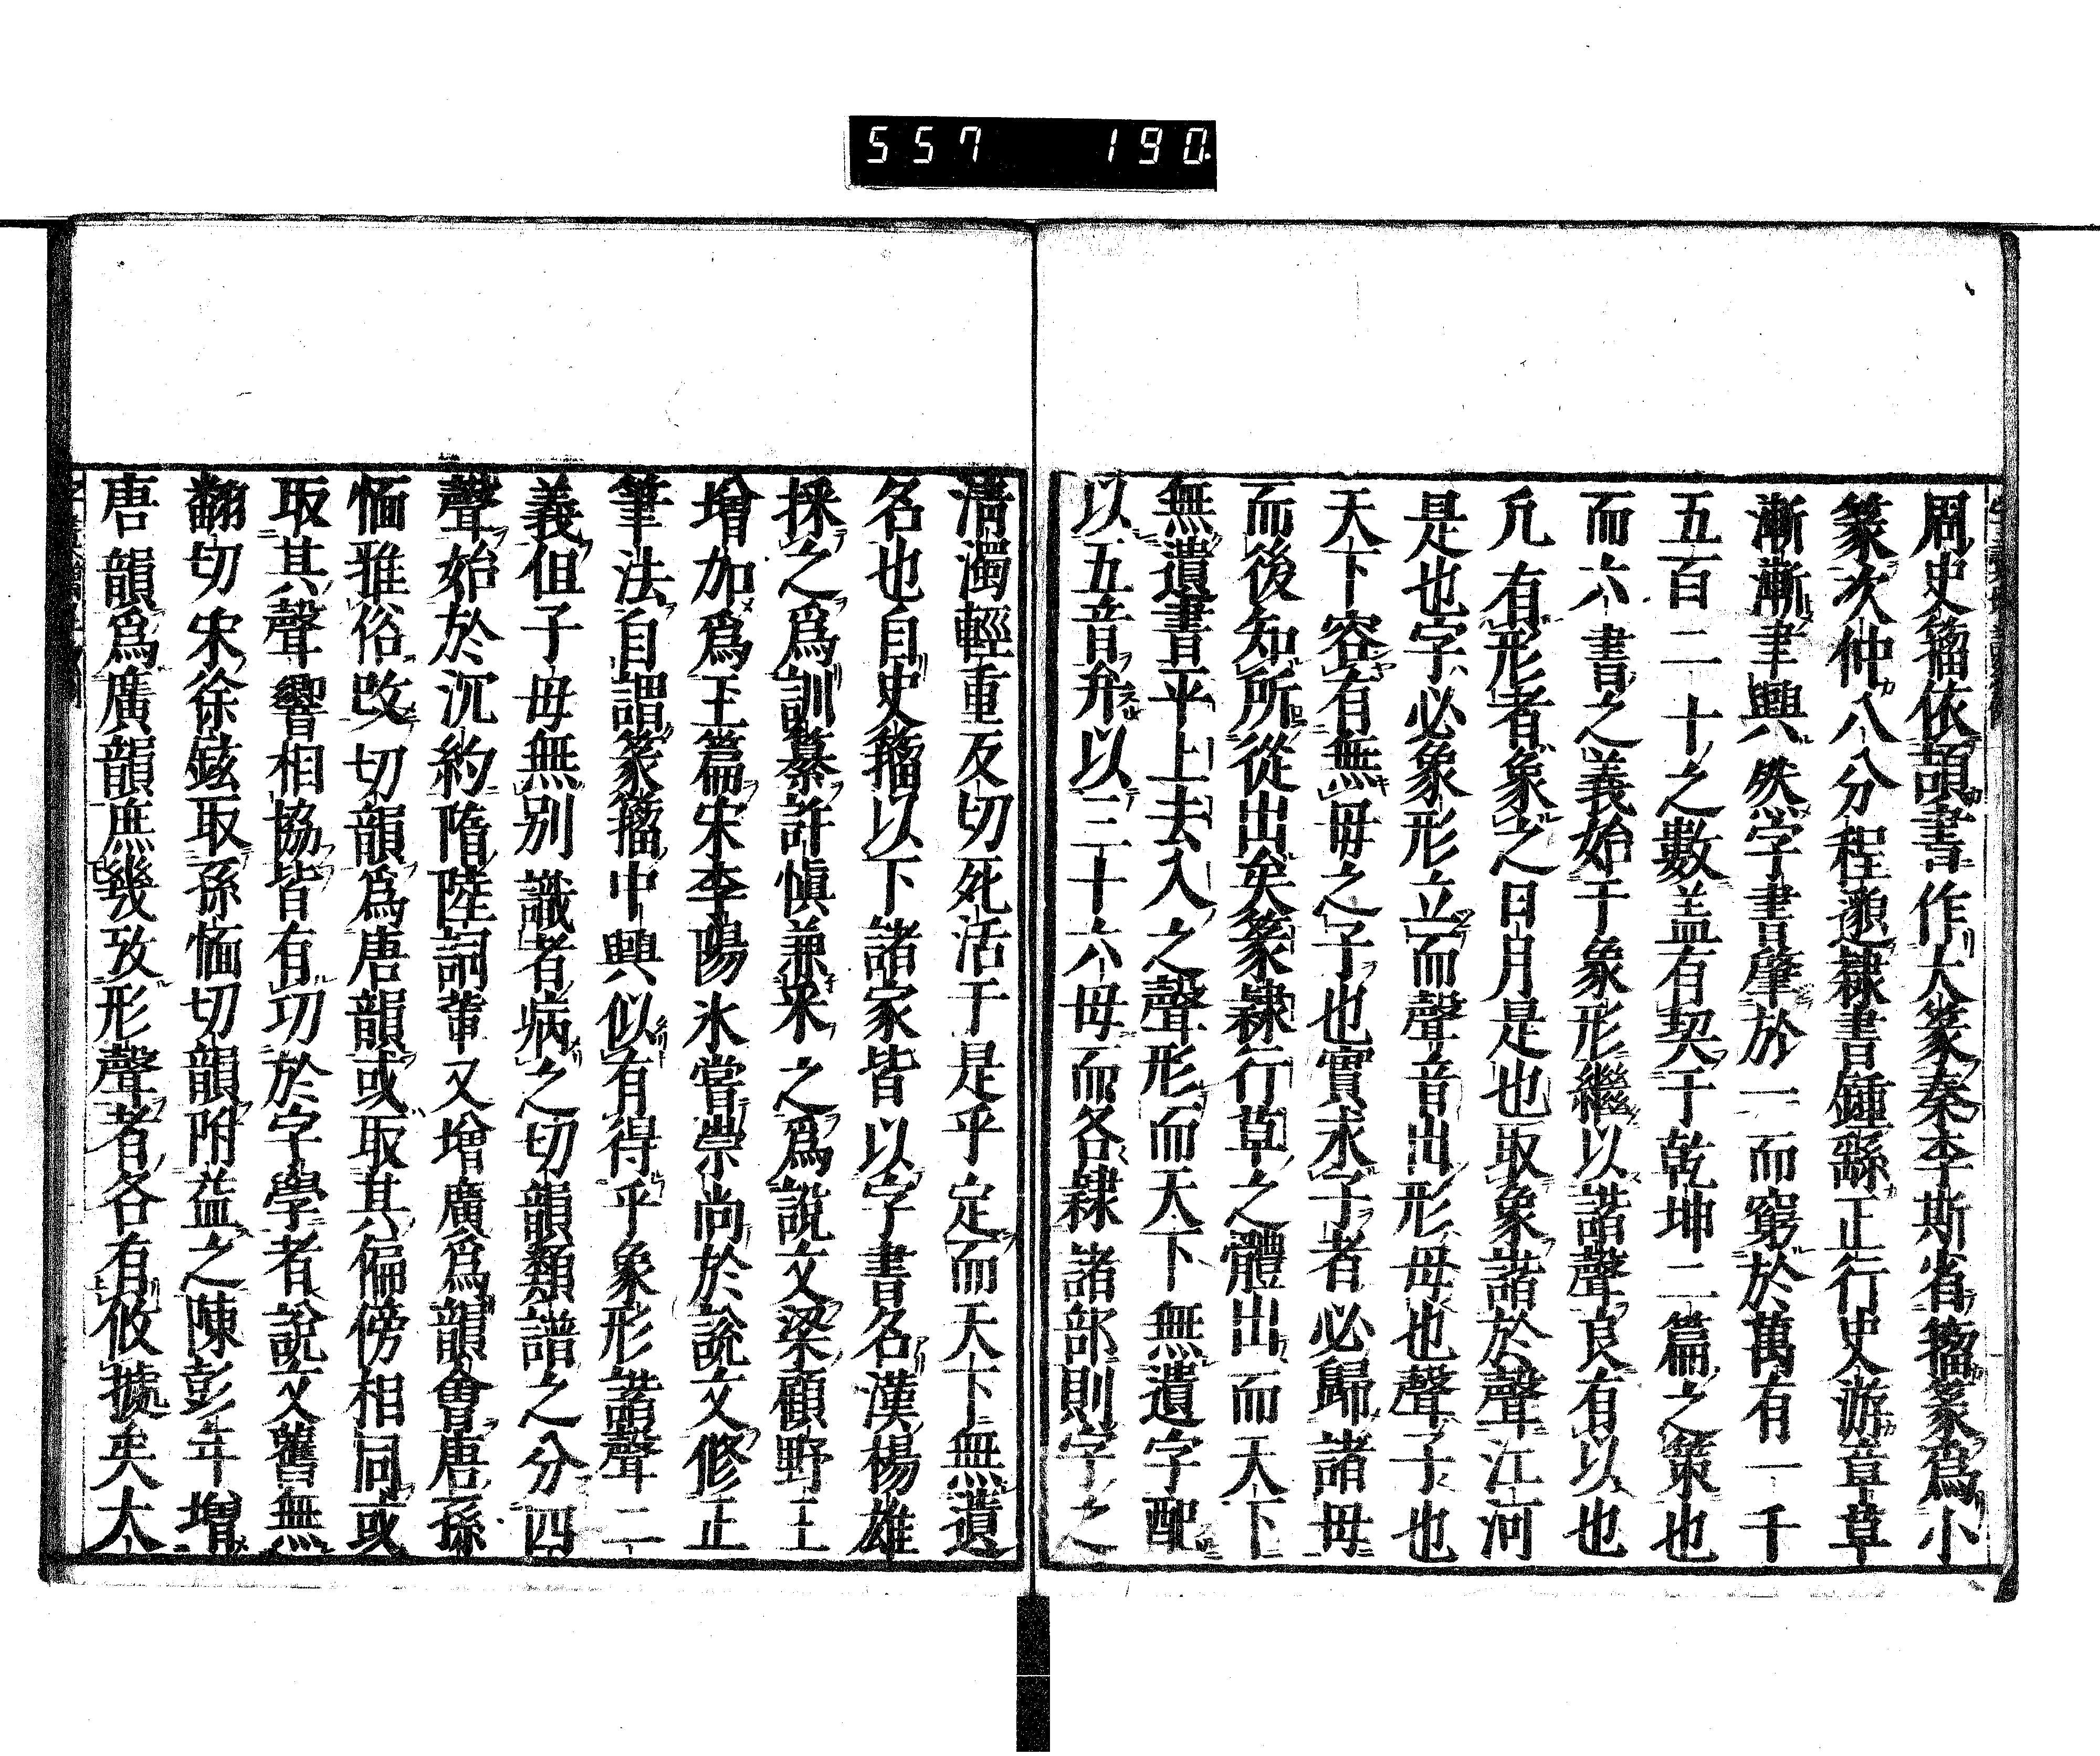 557 190
周史籒依頡書作大篆秦李斯省籒篆爲小
篆次仲八分程邈隷書鍾繇正行史游章草
漸漸聿興然字書肇於一而窮於萬有一千
五百二十之數盖有契于乾坤二篇之策也
而六書之義始于象形繼以諧聲良有以也
凢有形者象之日月是也取象諧於聲江河
是也字必象形立而聲音出形母也聲子也
天下容有無母之子也實求子者必歸諸母
而後知所從出矣篆隷行草之體出而天下
無遺書平上去入之聲形而天下無遺字配
以五音弁以三十六母而各隷諸部則字之
清濁輕重反切死活于是乎定而天下無遺
名也自史籒以下諸家皆以字書名漢楊雄
採之爲訓纂許愼兼采之爲說文梁顧野王
增加爲玉篇宋李陽氷嘗崇尚於說文修正
筆法自謂篆籒中興似有得乎象形諧聲二
義但子母無別識者病之切韻類譜之分四
聲始於沉約隋陸詞軰又增廣爲韻會唐孫
愐雅俗改切韻爲唐韻或取其偏傍相同或
取其聲響相協皆有功於字學者說文舊無
翻切宋徐鉉取孫愐切韻附益之陳彭年增
唐韻爲廣韻庶幾攷形聲者各有攸據矣大